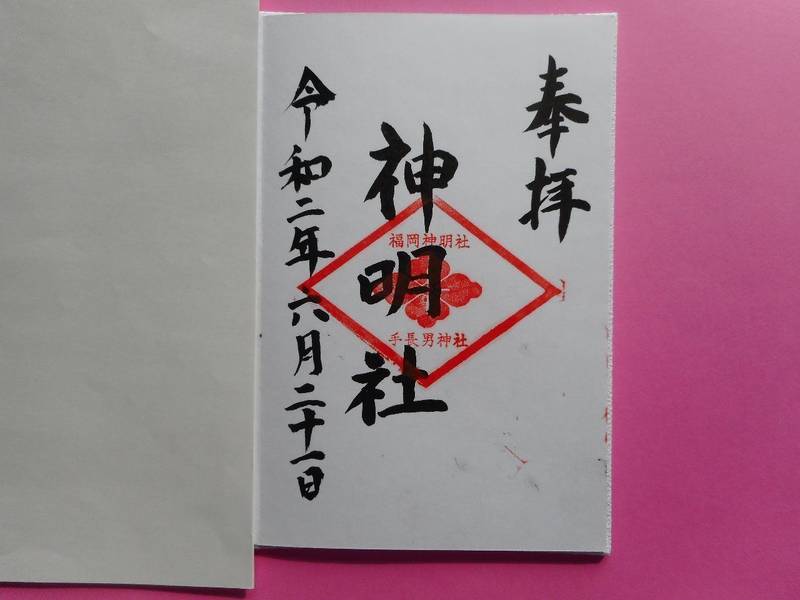 奉拝
神明社
福岡神明社
手長男神社
令和二年六月二十一日